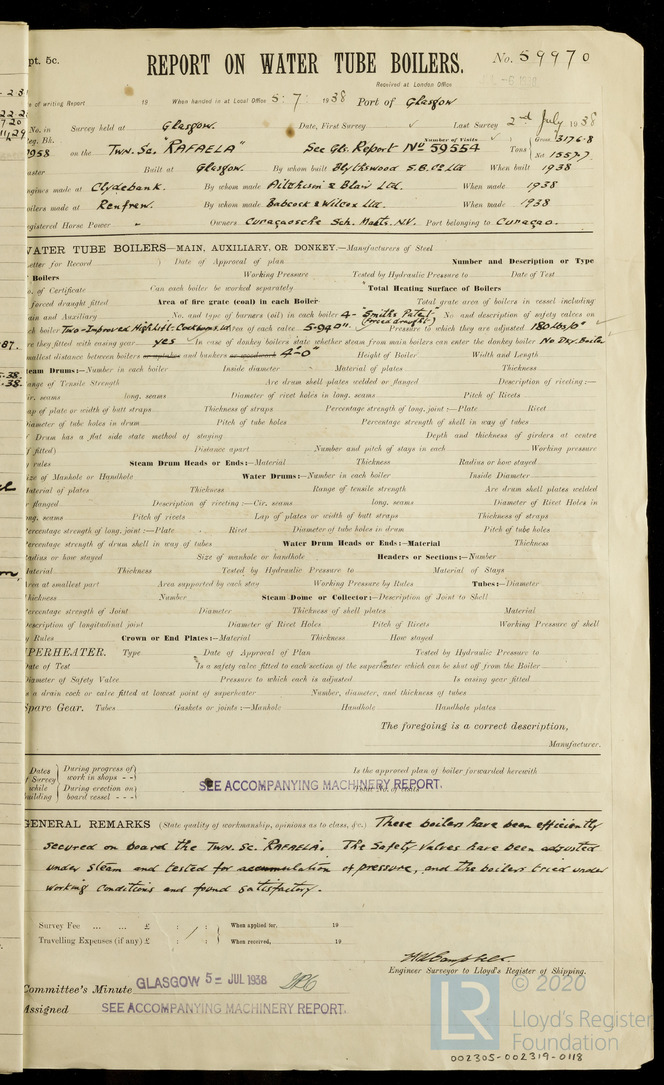 pt. 5c.
REPORT ON WATER TUBE BOILERS.
No. 59970
Required at London Office
of writing Report 19 When handed in at Local Office 5. 7. 1938 Port of Glasgow
No. in Survey held at Glasgow. Date, First Survey Last Survey 2nd July 1938
Reg. Bk. Number of Visits
1958 on the Twn. Sc. "RAFAELA" See Gls. Report No 59554 Tons Gross 3176.8 Net 1557.7
Built at Glasgow. By whom built Blythswood S.B. Co Ltd When built 1938
Engines made at Clydebank. By whom made Aitchison & Blair Ltd. When made 1938
Boilers made at Renfrew. By whom made Babcock & Wilcox Ltd. When made 1938
Registered Horse Power Owners Curaçaosche Sch. Maats. N.V. Port belonging to Curaçao.
WATER TUBE BOILERS—MAIN, AUXILIARY, OR DONKEY.—Manufacturers of Steel
Letter for Record ) Date of Approval of plan Number and Description or Type
Boilers Working Pressure Tested by Hydraulic Pressure to Date of Test
No. of Certificate Can each boiler be worked separately Total Heating Surface of Boilers
forced draught fitted Area of fire grate (coal) in each Boiler Total grate area of boilers in vessel including
Main and Auxiliary No. and type of burners (oil) in each boiler 4- "Smiths Patent" (forced draught) No. and description of safety valves on
each boiler Two-Improved High Lift: Cockburns Ltd Area of each valve 5.940" Pressure to which they are adjusted 180 lbs/□"
Are they fitted with easing gear yes In case of donkey boilers state whether steam from main boilers can enter the donkey boiler No Dky. Boiler
Smallest distance between boilers or uptakes and bunkers or woodwork 4'-0" Height of Boiler Width and Length
Steam Drums:—Number in each boiler Inside diameter Material of plates Thickness
Range of Tensile Strength Are drum shell plates welded or flanged Description of riveting:—
Cir. seams long. seams Diameter of rivet holes in long. seams Pitch of Rivets
Lap of plate or width of butt straps Thickness of straps Percentage strength of long. joint:—Plate Rivet
Diameter of tube holes in drum Pitch of tube holes Percentage strength of shell in way of tubes
If Drum has a flat side state method of staying Depth and thickness of girders at centre
(if fitted) Distance apart Number and pitch of stays in each Working pressure
by rules Steam Drum Heads or Ends:—Material Thickness Radius or how stayed
Size of Manhole or Handhole Water Drums:—Number in each boiler Inside Diameter
Material of plates Thickness Range of tensile strength Are drum shell plates welded
or flanged Description of riveting:—Cir. seams long. seams Diameter of Rivet Holes in
long. seams Pitch of rivets Lap of plates or width of butt straps Thickness of straps
Percentage strength of long. joint:—Plate Rivet Diameter of tube holes in drum Pitch of tube holes
Percentage strength of drum shell in way of tubes Water Drum Heads or Ends:—Material Thickness
Radius or how stayed Size of manhole or handhole Headers or Sections:—Number
Material Thickness Tested by Hydraulic Pressure to Material of Stays
Area at smallest part Area supported by each stay Working Pressure by Rules Tubes:—Diameter
Thickness Number Steam Dome or Collector:—Description of Joint to Shell
Percentage strength of Joint Diameter Thickness of shell plates Material
Description of longitudinal joint Diameter of Rivet Holes Pitch of Rivets Working Pressure of shell
by Rules Crown or End Plates:—Material Thickness How stayed
SUPERHEATER. Type Date of Approval of Plan Tested by Hydraulic Pressure to
Date of Test Is a safety valve fitted to each section of the superheater which can be shut off from the Boiler
Diameter of Safety Valve Pressure to which each is adjusted Is easing gear fitted
Is a drain cock or valve fitted at lowest point of superheater Number, diameter, and thickness of tubes
Spare Gear. Tubes Gaskets or joints:—Manhole Handhole Handhole plates
The foregoing is a correct description,
Manufacturer.
Dates of Survey while building During progress of work in shops - - Is the approved plan of boiler forwarded herewith
During erection on board vessel - - -
SEE ACCOMPANYING MACHINERY REPORT.
GENERAL REMARKS (State quality of workmanship, opinions as to class, &c.) These boilers have been efficiently
secured on board the Twn. Sc. "RAFAELA". The Safety Valves have been adjusted
under steam and tested for accumulation of pressure, and the boilers tried under
working conditions and found satisfactory.
Survey Fee ... ... £ : : When applied for, 19
Travelling Expenses (if any) £ : : When received, 19
Engineer Surveyor to Lloyd's Register of Shipping.
Committee's Minute GLASGOW 5 - JUL 1938
Assigned SEE ACCOMPANYING MACHINERY REPORT.
LR © 2020
Lloyd's Register
Foundation
002305-002319-0118